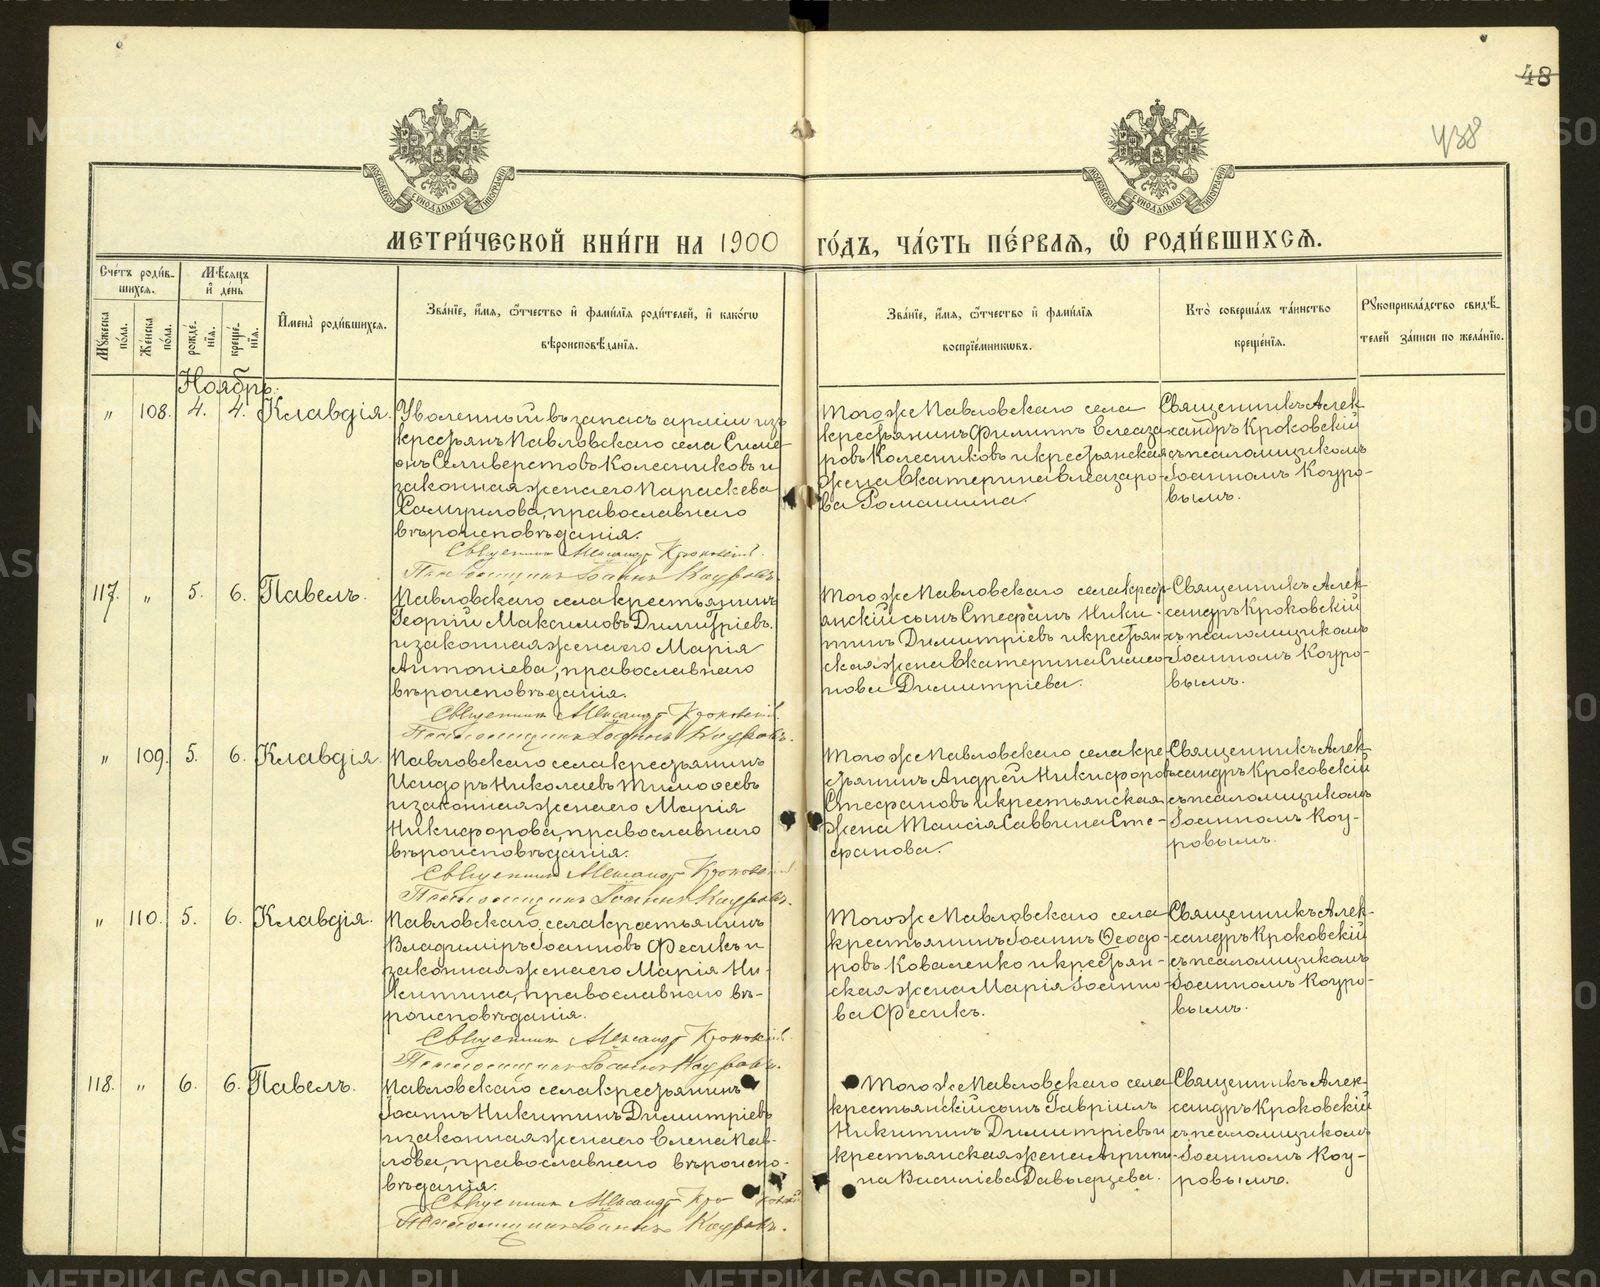 48
438
МОСКОВСКОЙ СѴНОДАЛЬНОЙ ТИПОГРАФІИ
МОСКОВСКОЙ СѴНОДАЛЬНОЙ ТИПОГРАФІИ
МЕТРИ́ЧЕСКОЙ КНИ́ГИ НА 1900 ГО́ДЪ, ЧА́СТЬ ПЕ́РВАЯ, Ѡ҆ РОДИ́ВШИХСЯ.
Сче́тъ роди́в-
шихся.
Мѣ́сяцъ
и҆ де́нь
Мꙋ́жеска по́ла.
Же́нска по́ла.
рожде́-
нїя.
креще́-
нїя.
И҆мена̀ роди́вшихся.
Зва́нїе, и҆́мя, ѻ҆́тчество и҆ фами́лїя роди́телей, и҆ како́гѡ
вѣроисповѣ́данїя.
Зва́нїе, и҆́мя, ѻ҆́тчество и҆ фами́лїя
воспрїе́мникѡвъ.
Кто̀ соверша́лъ та́инство
креще́нїя.
Рꙋкоприкла́дство свидѣ́-
телей за́писи по жела́нїю.
Ноябрь.
" 108. 4. 4. Клавдія.
Уволенный въ запасъ арміи изъ
крестьянъ Павловскаго села Симе-
онъ Селиверстовъ Колесниковъ и
законная жена его Параскева
Самуилова, православнаго
вѣроисповѣданія.
Священникъ Александръ Кроковскій.
Псаломщикъ Іоаннъ Коуровъ.
Того же Павловскаго села
крестьянинъ Филиппъ Елеаза-
ровъ Колесниковъ и крестьянская
жена Екатерина Елеазаро-
ва Ромашина.
Священникъ Алек-
сандръ Кроковскій
съ псаломщикомъ
Іоанномъ Коуро-
вымъ.
117. " 5. 6. Павелъ.
Павловскаго села крестьянинъ
Георгій Максимовъ Димитріевъ
и законная жена его Марія
Антоніева, православнаго
вѣроисповѣданія.
Священникъ Александръ Кроковскій.
Псаломщикъ Іоаннъ Коуровъ.
Того же Павловскаго села крест-
янскій сынъ Стефанъ Ники-
тинъ Димитріевъ и крестьян-
ская жена Екатерина Симео-
нова Димитріева.
Священникъ Алек-
сандръ Кроковскій
съ псаломщикомъ
Іоанномъ Коуро-
вымъ.
" 109. 5. 6. Клавдія.
Павловскаго села крестьянинъ
Исидоръ Николаевъ Тимоѳеевъ
и законная жена его Марія
Никифорова, православнаго
вѣроисповѣданія.
Священникъ Александръ Кроковскій
Псаломщикъ Іоаннъ Коуровъ.
Того же Павловскаго села кре-
стьянинъ Андрей Никифоровъ
Стефановъ и крестьянская
жена Таисія Саввина Сте-
фанова.
Священникъ Алек-
сандръ Кроковскій
съ псаломщикомъ
Іоанномъ Коу-
ровымъ.
" 110. 5. 6. Клавдія.
Павловскаго села крестьянинъ
Владиміръ Іоанновъ Фесикъ и
законная жена его Марія Ни-
китина, православнаго вѣ-
роисповѣданія.
Священникъ Александръ Кроковскій.
Псаломщикъ Іоаннъ Коуровъ.
Того же Павловскаго села
крестьянинъ Іоаннъ Ѳеодо-
ровъ Коваленко и крестьян-
ская жена Марія Іоанно-
ва Фесикъ.
Священникъ Алек-
сандръ Кроковскій
съ псаломщикомъ
Іоанномъ Коуро-
вымъ.
118. " 6. 6. Павелъ.
Павловскаго села крестьянинъ
Іоаннъ Никитинъ Димитріевъ
и законная жена его Елена Пав-
лова, православнаго вѣроиспо-
вѣданія.
Священникъ Александръ Кроковскій
Псаломщикъ Іоаннъ Коуровъ.
Того же Павловскаго села
крестьянскій сынъ Гавріилъ
Никитинъ Димитріевъ и
крестьянская жена Ирини-
на Василіева Давыерцева.
Священникъ Алек-
сандръ Кроковскій
съ псаломщикомъ
Іоанномъ Коу-
ровымъ.
METRIKI.GASO-URAL.RU